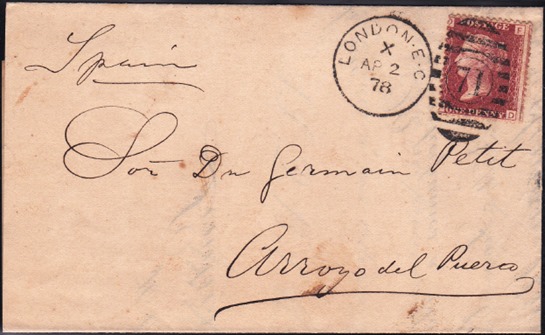 Spain
LONDON·E.C
X
AP 2
78
71
POSTAGE
ONE PENNY D
Sor Dn Germain Petit
Arroyo del Puerco